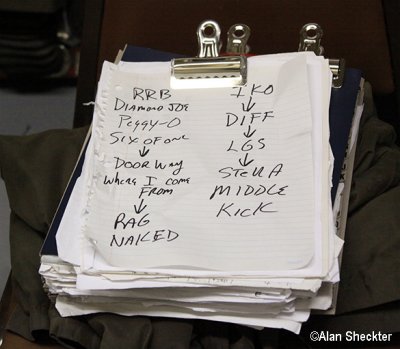 RRB
DIAMOND JOE
PEGGY-O
SIX OF ONE
↓
DOORWAY
WHERE I COME
FROM
↓
RAG
NAILED
IKO
↓
DIFF
↓
LGS
↓
STELLA
MIDDLE
KICK
©Alan Sheckter